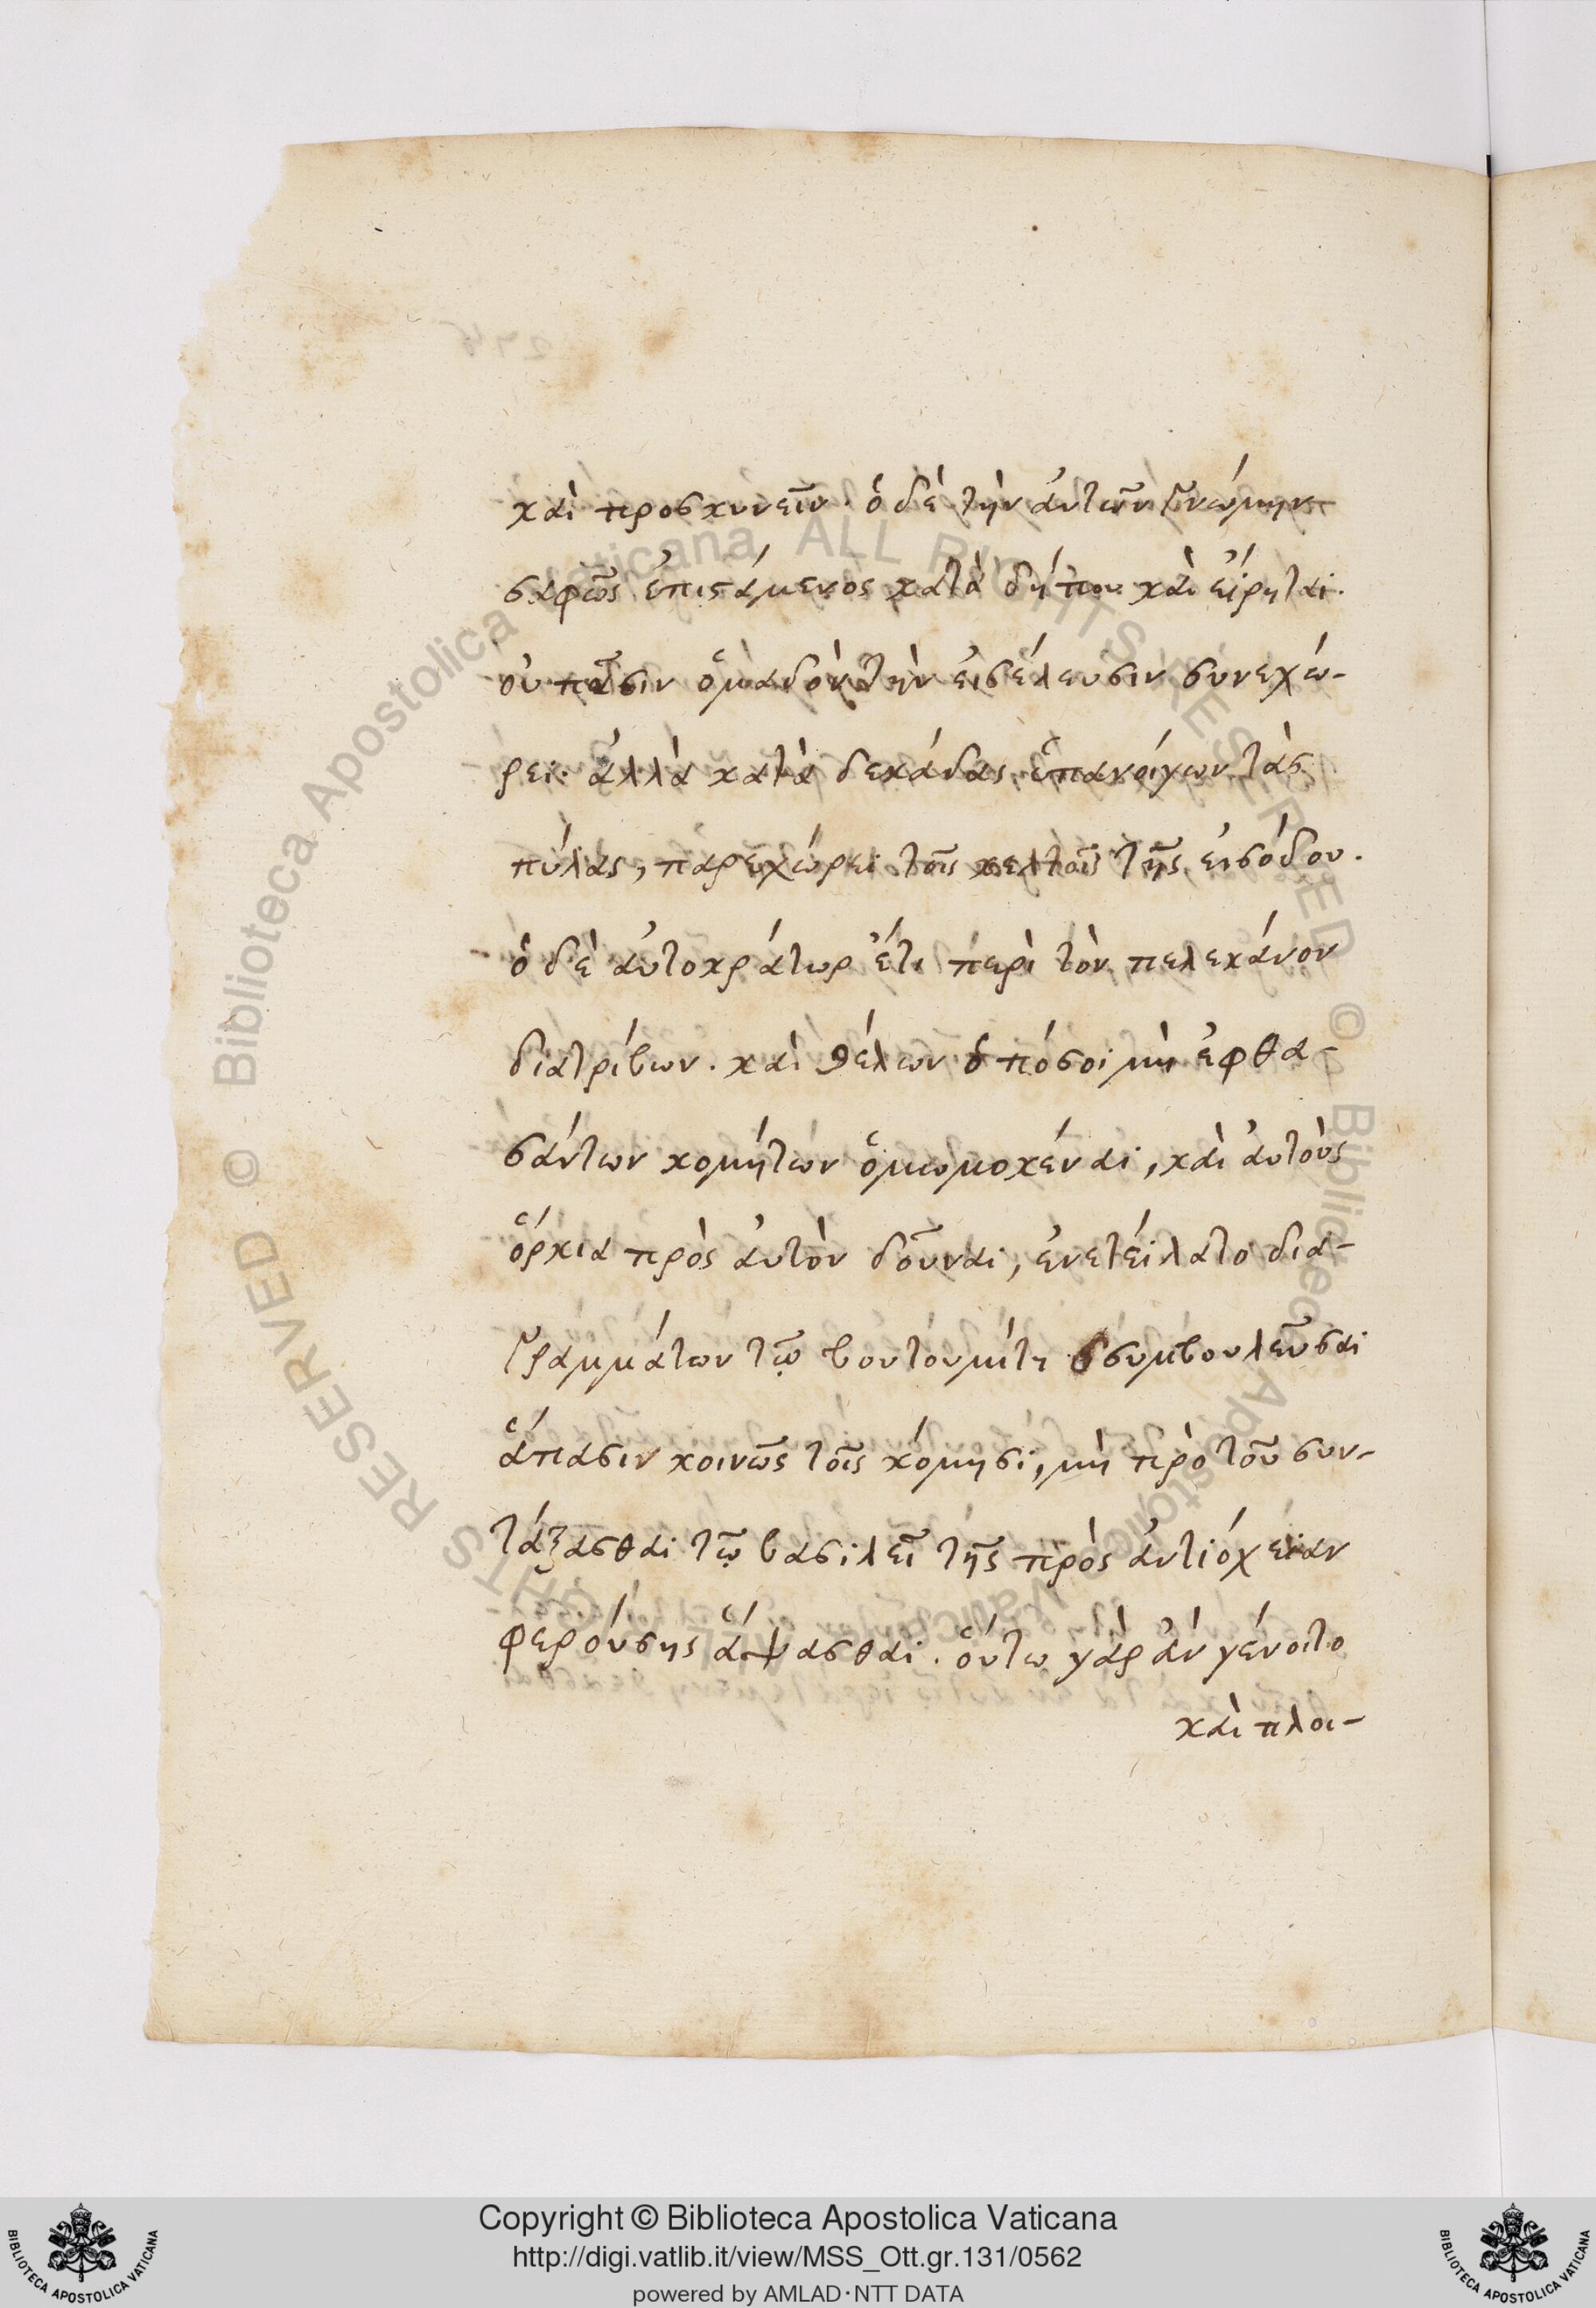 καὶ προσκυνεῖν· ὁ δὲ τὴν ἀυτῶν γνώμην
σαφῶς ἐπιστάμενος κατὰ δήπου καὶ ἐίρηται·
οὐ πᾶσιν ὁμαδὸν τὴν ἐισέλευσιν συνεχώ-
ρει· ἀλλὰ κατὰ δεκάδας ἐπανοίγων τὰς
πύλας, παρεχώρει τοῖς κελτοῖς τῆς εἰσόδου.
ὁ δὲ ἀυτοκράτωρ ἔτι περὶ τὸν πελεκάνον
διατρίβων. καὶ θέλων ὁπόσοι μὴ ἐφθα-
σάντων κομήτων ὀμωμοκέναι, καὶ ἀυτοὺς
ὅρκια πρὸς ἀυτὸν δοῦναι, ἐνετείλατο δια-
γραμμάτων τῷ βουτουμίτῃ συμβουλεῦσαι
ἅπασιν κοινῶς τοῖς κόμησι, μὴ πρὸ τοῦ συν-
τάξασθαι τῷ βασιλεῖ τῆς πρὸς ἀντιόχειαν
φερούσης ἅψασθαι. ὅυτω γὰρ ἂν γένοιτο
καὶ πλοι-
Copyright © Biblioteca Apostolica Vaticana
http://digi.vatlib.it/view/MSS_Ott.gr.131/0562
powered by AMLAD·NTT DATA
BIBLIOTECA APOSTOLICA VATICANA
BIBLIOTECA APOSTOLICA VATICANA
© Biblioteca Apostolica Vaticana ALL RIGHTS RESERVED
© Biblioteca Apostolica Vaticana ALL RIGHTS RESERVED